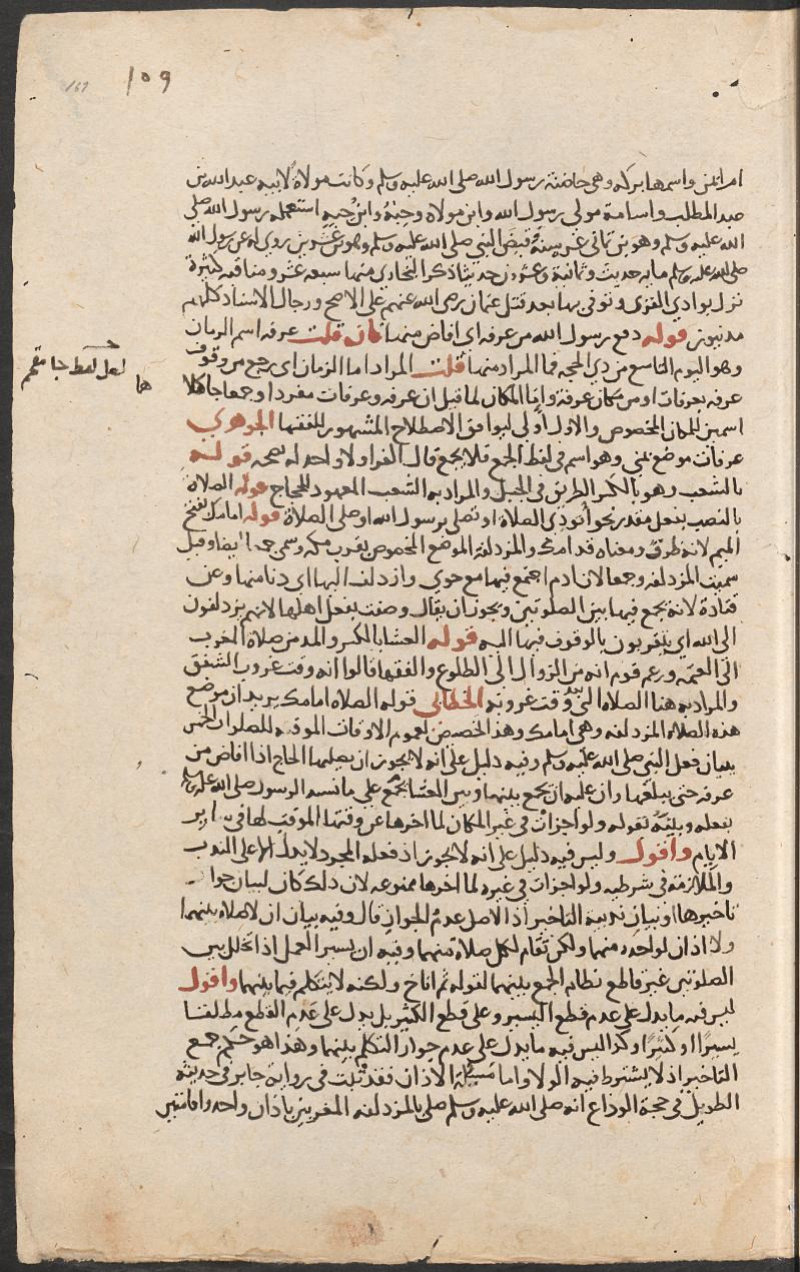 109
ام ايمن واسمها بركة وهي حاضنة رسول الله صلى الله عليه وسلم وكانت مولاة لابيه عبد الله بن
عبد المطلب واسامة مولى رسول الله وابن مولاه وحبه وابن حبه استعمله رسول الله صلى
الله عليه وسلم وهو بن ثماني عشر سنة قبض النبي صلى الله عليه وسلم وهو بن عشرين روي له عن رسول الله
صلى الله عليه وسلم مايه حديث وثمانية وعشرون حديثا ذكر البخاري منها سبعة عشر ومناقبه كثيرة
نزل بوادي القرى وتوفي بها بعد قتل عثمان رضي الله عنهم على الاصح ورجال الاسناد كلهم
مدنيون قوله دفع رسول الله من عرفة اي افاض منها فان قلت عرفه اسم الزمان
وهو اليوم التاسع من ذي الحجه فما المراد منها قلت المراد اما الزمان اي رجع من وقوف
عرفه بعرفات او من مكان عرفة واما المكان لما قيل ان عرفه وعرفات مفردا وجمعا جا كلا
لعل لفظ جا مقحم
هما
اسمين للمكان المخصوص والاول اولى ليوافق الاصطلاح المشهور للفقها الجوهري
عرفات موضع بمني وهو اسم في لفظ الجمع فلا يجمع قال الفرا ولا واحد له بصحه قوله
بالشعب وهو بالكسر الطريق في الجبل والمراد به الشعب المعهود للحجاج قوله الصلاة
بالنصب بفعل مقدر نحو اتودي الصلاة او تصلي يرسول الله او صلى الصلاة قوله امامك بفتح
الميم لانه ظرف ومعناه قدامك والمزدلفة الموضع المخصوص بقرب مكه وسمي جمعا ايضا وقيل
سميت المزدلفه وجمعا لان ادم اجتمع فيها مع حوي وازدلف اليها اي دنا منها وعن
قتادة لانه يجمع فيها بين الصلوتين ويجوز ان يقال وصفت بفعل اهلها لانهم يزدلفون
الى الله اي يتقربون بالوقوف فيها اليه قوله العشا بالكسر والمد من صلاة المغرب
الى العتمه وزعم قوم انه من الزوال الى الطلوع والفقها قالوا انه وقت غروب الشفق
والمراد به هنا الصلاة التي بعد وقت غروبه الخطابي قوله الصلاه امامك يريد ان موضع
هذه الصلاه المزدلفه وهي امامك وهذا تخصيص لعموم الاوقات الموقته للصلوات الخمس
ببيان فعل النبي صلى الله عليه وسلم وفيه دليل على انه لا يجوز ان يصليها الحاج اذا افاض من
عرفه حتى يبلغها وان عليه ان يجمع بينها وبين العشا بجمع على ما سنه الرسول صلى الله عليه وسلم
بفعله وبينه بقوله ولو اجزات في غير المكان لما اخرها عن وقتها الموقت لها في ساير
الايام واقول وليس فيه دليل على انه لا يجوز اذ فعله المجرد لا يدل الا على الندب
والملازمة في شرطيه ولو اجزات في غيره لما اخرها ممنوعه لان ذلك كان لبيان جواز
تاخيرها او بيان ندبيه التاخير اذ الاصل عدم الجواز قال وفيه بيان ان لا صلاه بينهما
ولا اذان لواحده منهما ولكن تقام لكل صلاة منهما وفيه ان يسير العمل اذا تخلل بين
الصلوتين غير قاطع نظام الجمع بينهما لقوله ثم اناخ ولكنه لا يتكلم فيما بينهما واقول
ليس فيه ما يدل على عدم قطع اليسير وعلى قطع الكثير بل يدل على عدم القطع مطلقا
يسيرا او كثيرا وكذا ليس فيه ما يدل على عدم جواز التكلم بينهما وهذا هو حكم جمع
التاخير اذ لا يشترط فيه الولا واما مسئلة الاذان فقد ثبت في رواية جابر في حديثه
الطويل في حجة الوداع انه صلى الله عليه وسلم صلى بالمزدلفه المغربين باذان واحد واقامتين